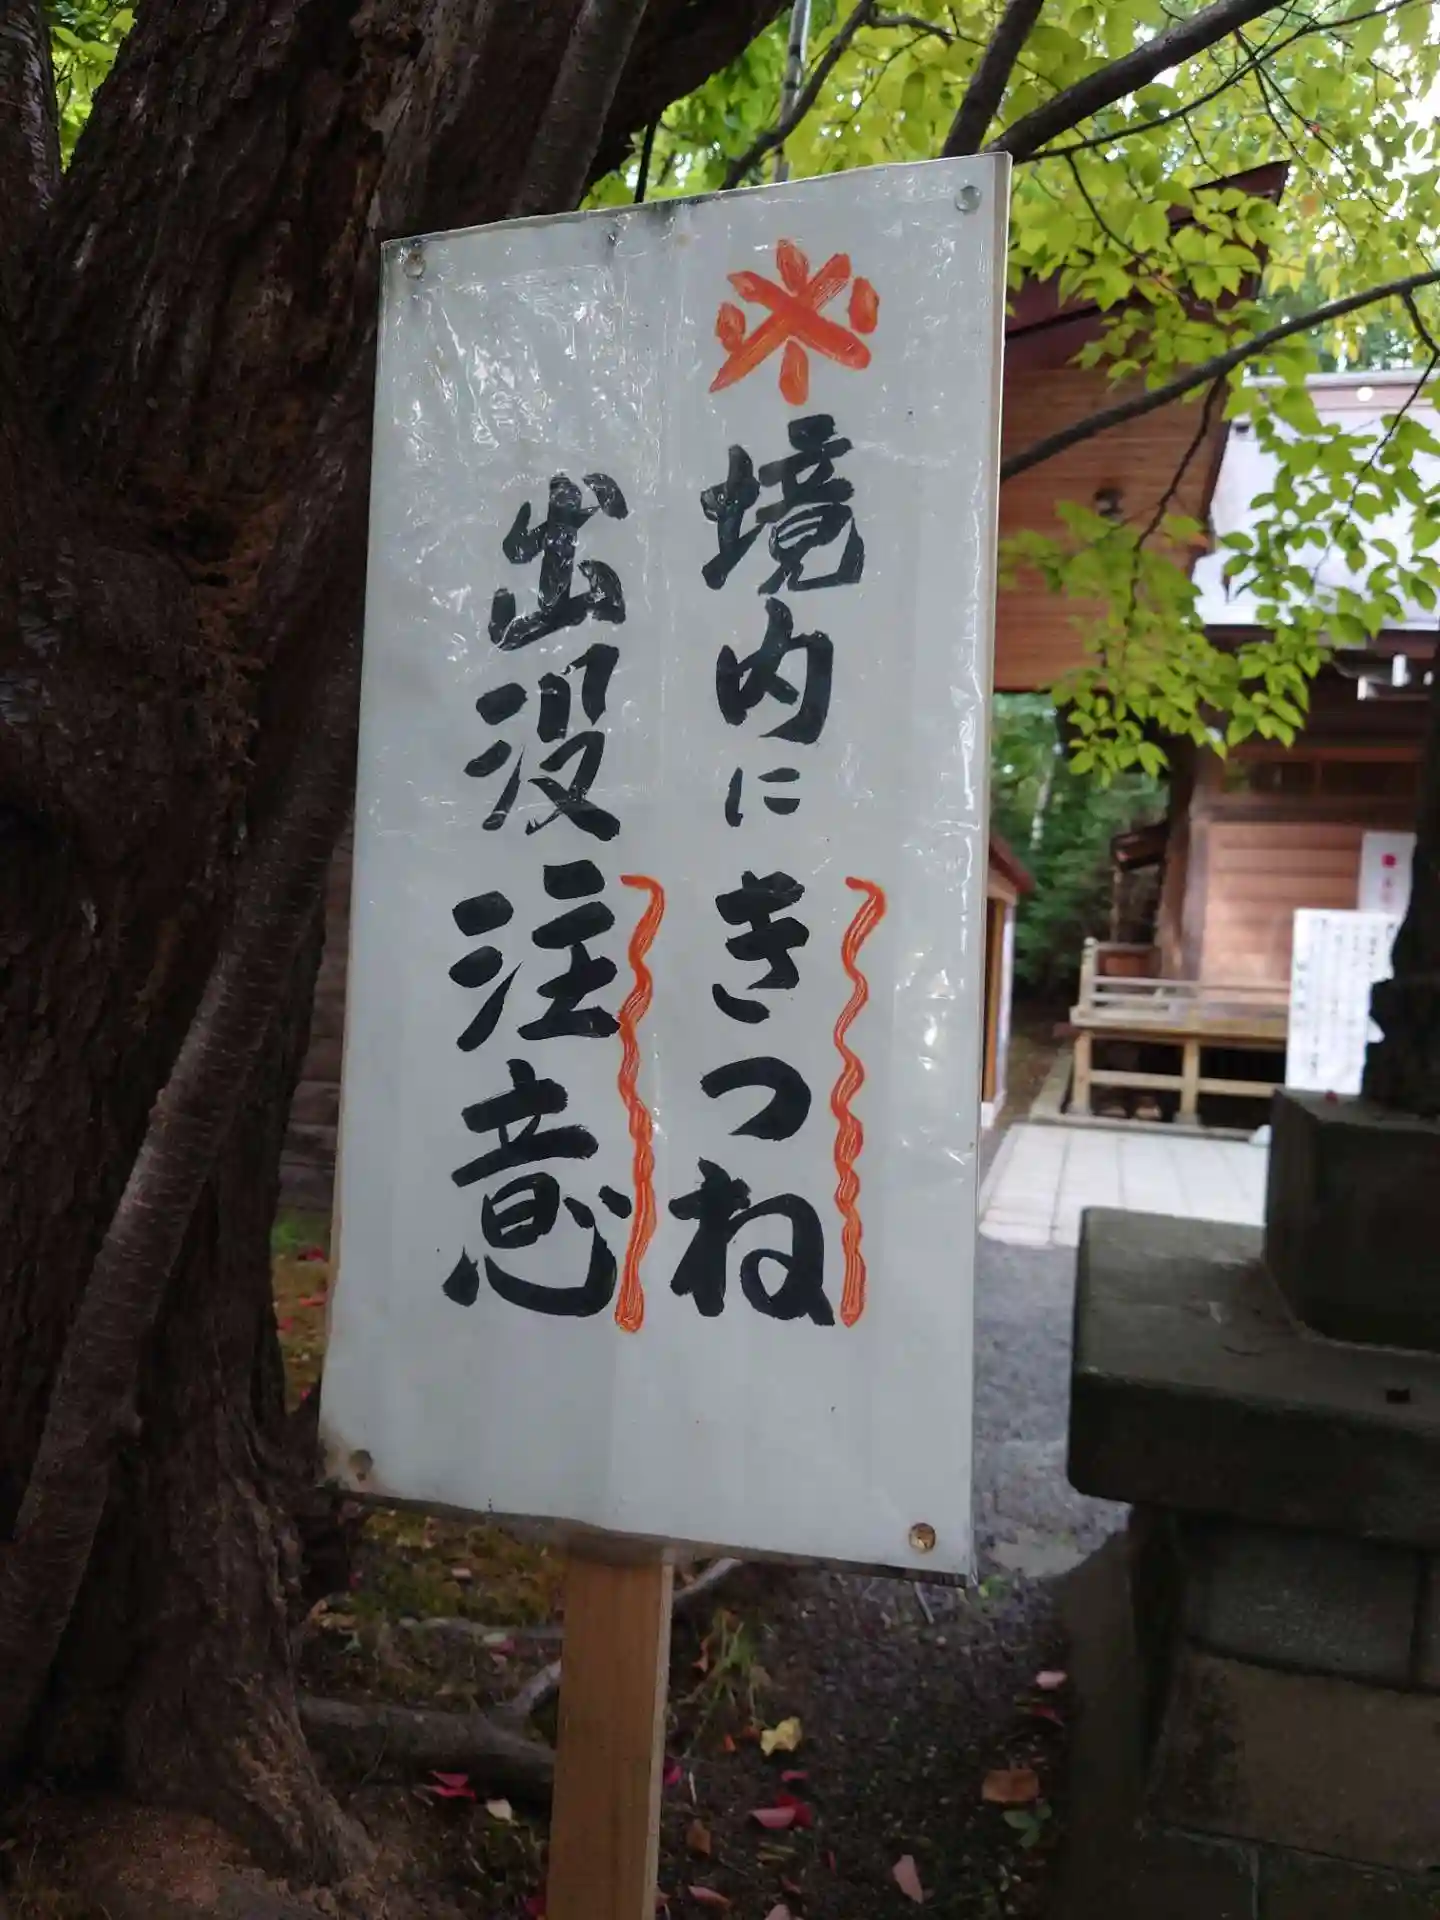 ※境内にきつね
出没注意